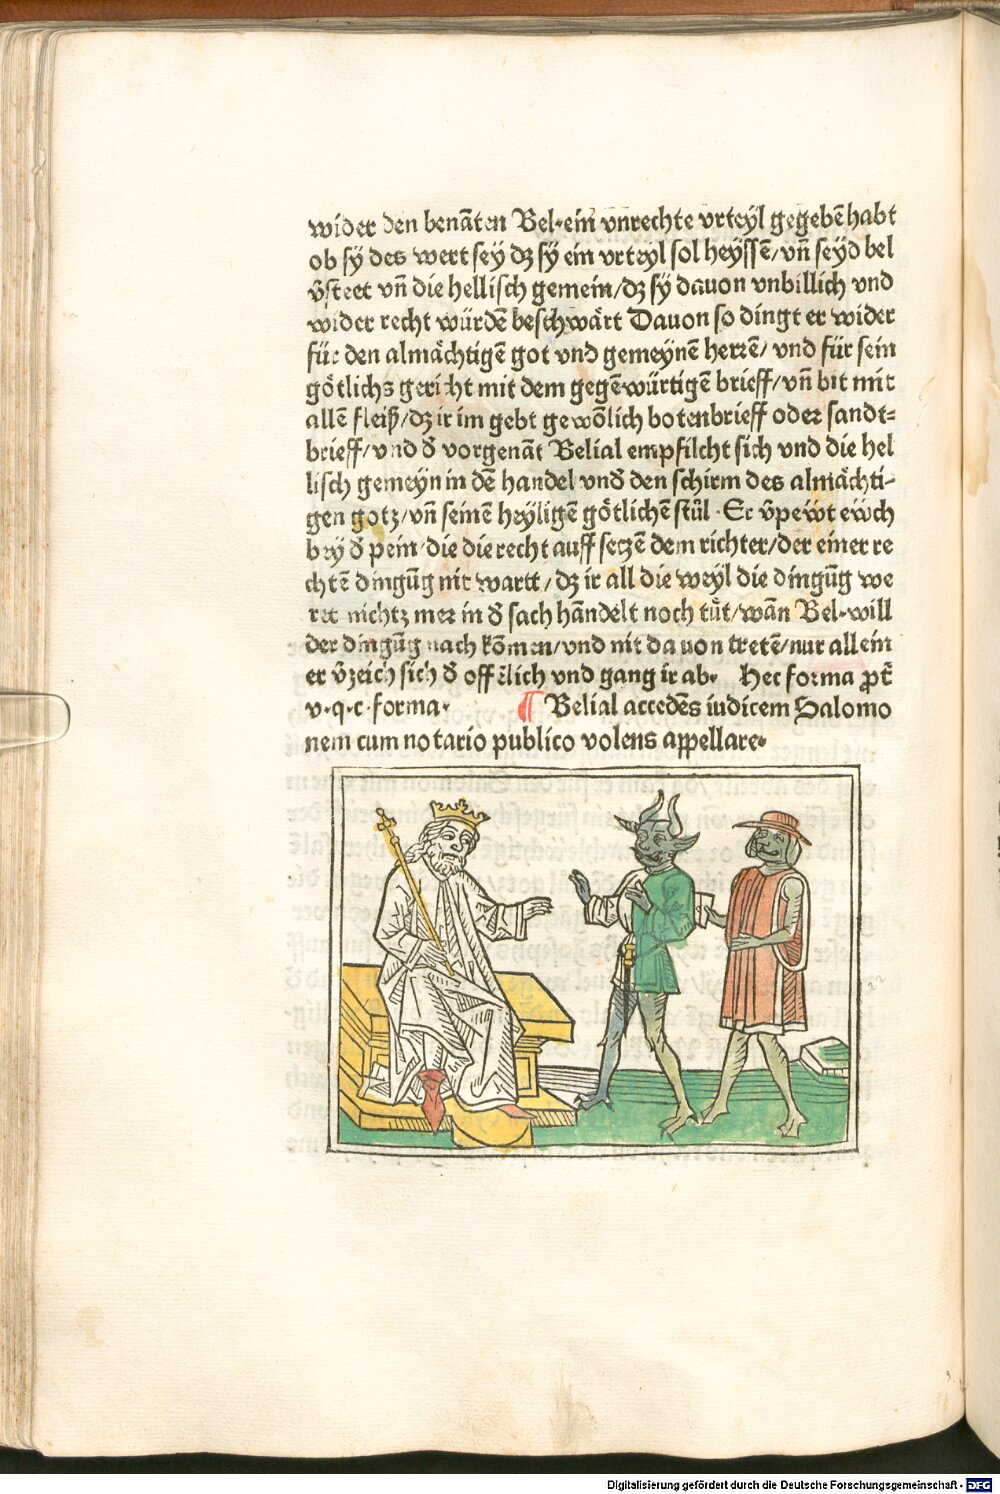 wider den benāten Bel·ein vnrechte vrteyl gegebē habt
ob sy des wert sey dz sy ein vrteyl sol heyssē/vn̄ seyd bel
v̄steet vn̄ die hellisch gemein/dz sy dauon vnbillich vnd
wider recht würdē beschwårt Dauon so dingt er wider
für den almåchtigē got vnd gemeynē herzē/vnd für sein
gŏtlichs gericht mit dem gegēwürtigē brieff/vn̄ bit mit
allē fleiß/dz ir im gebt gewŏlich botenbrieff oder sandt=
brieff/vnd d̄ vorgenāt Belial empfilcht sich vnd die hel
lisch gemeyn in dē handel vnd̄ den schirm des almåchti-
gen gotz/vn̄ seinē heyligē gŏtlichē stůl·Er v̄pewt ewch
bey d̄ pein/die die recht auff setzē dem richter/der einer re
chtē dingūg nit wartt/dz ir all die weyl die dingūg we
ret nichtz mer in d̄ sach hādelt noch tůt/wān Bel·will
der dingūg nach kŏmen/vnd nit dauon tretē/nur allein
er v̄zeich sich d̄ offēlich vnd gang ir ab· Hec forma pt̄
v·q·c·forma· ¶ Belial accedēs iudicem Salomo
nem cum notario publico volens appellare·
Digitalisierung gefördert durch die Deutsche Forschungsgemeinschaft - DFG